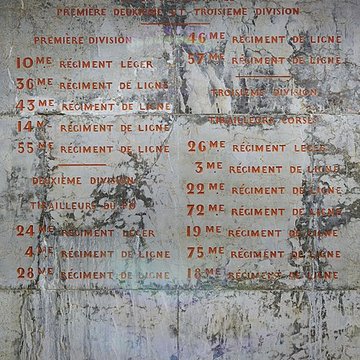 PREMIÈRE DEUXIÈME ET TROISIÈME DIVISION
PREMIÈRE DIVISION
10ME RÉGIMENT LÉGER
36ME RÉGIMENT DE LIGNE
43ME RÉGIMENT DE LIGNE
14ME RÉGIMENT DE LIGNE
55ME RÉGIMENT DE LIGNE
DEUXIÈME DIVISION
TIRAILLEURS DU PO
24ME RÉGIMENT LÉGER
4ME RÉGIMENT DE LIGNE
28ME RÉGIMENT DE LIGNE
46ME RÉGIMENT DE LIGNE
57ME RÉGIMENT DE LIGNE
TROISIÈME DIVISION
TIRAILLEURS CORSES
26ME RÉGIMENT LÉGER
3ME RÉGIMENT DE LIGNE
22ME RÉGIMENT DE LIGNE
72ME RÉGIMENT DE LIGNE
12ME RÉGIMENT DE LIGNE
75ME RÉGIMENT DE LIGNE
18ME RÉGIMENT DE LIGNE